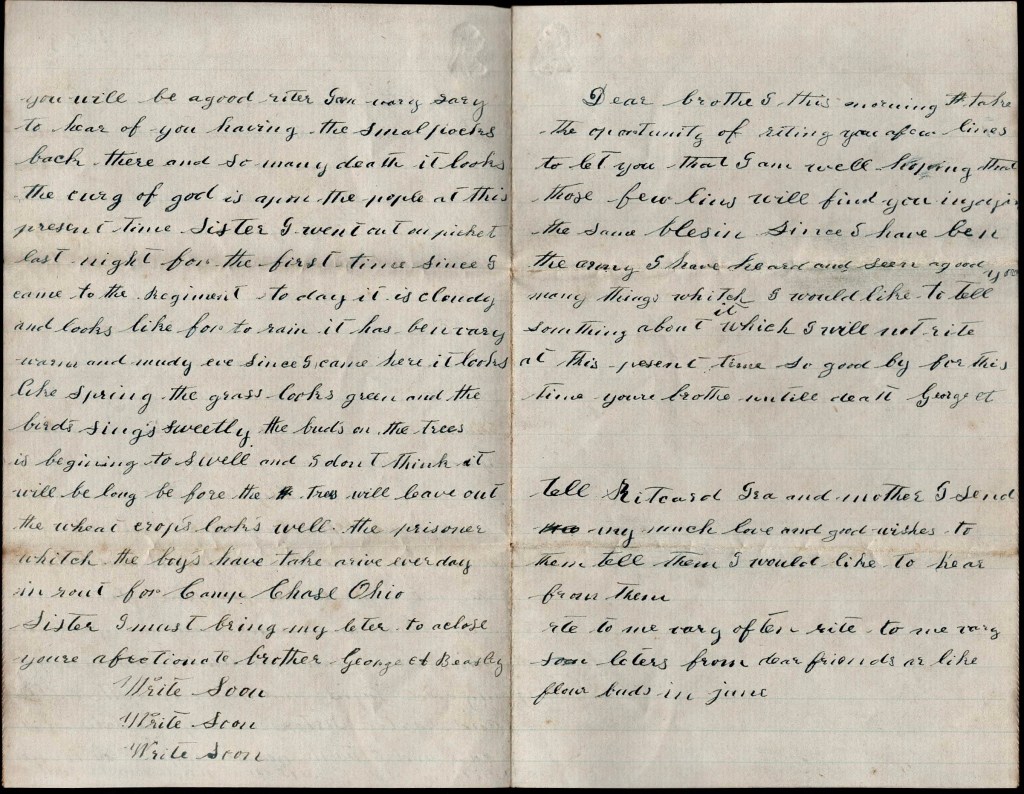 you will be agood riter I am vary sary
to hear of you having the smal pocks
back there and so many death it looks
the curg of god is apon the pople at this
present time. Sister I went out on picket
last night for the first time since I
came to the Regiment to day it is cloudy
and looks like for to rain it has ben vary
warm and mudy eve since I came here it looks
like spring the grass looks green and the
birds sings sweetly the buds on the trees
is begining to swell and I dont think it
will be long be fore the trees will leave out
the wheat crops looks well the prisoner
whitch the boys have take arive everday
in rout for Camp Chase Ohio
Sister I must bring my leter to aclose
youre afectionate brother George Beasly
Write Soon
Write Soon
Write Soon
Dear brothe I this morning take
the oportunity of riting you afew lines
to let you that I am well hoping that
those few lins will find you injoyin
the same blesin Since I have ben
the army I have heard and seen agood
many things whitch I would like to tell you
somthing about it which I will not rite
at this present time so good by for this
time youre brothe untill deatt George
tell Ritcard Ira and mother I send
my much love and good wishes to
them tell them I would like to hear
from them
rite to me vary often rite to me vary
soon leters from dear friends ar like
flour buds in june